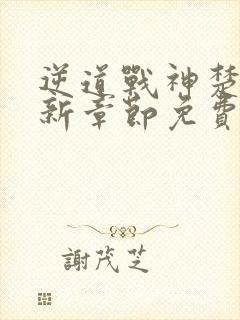 逆道戰神楚
新章節免費
謝茂芝